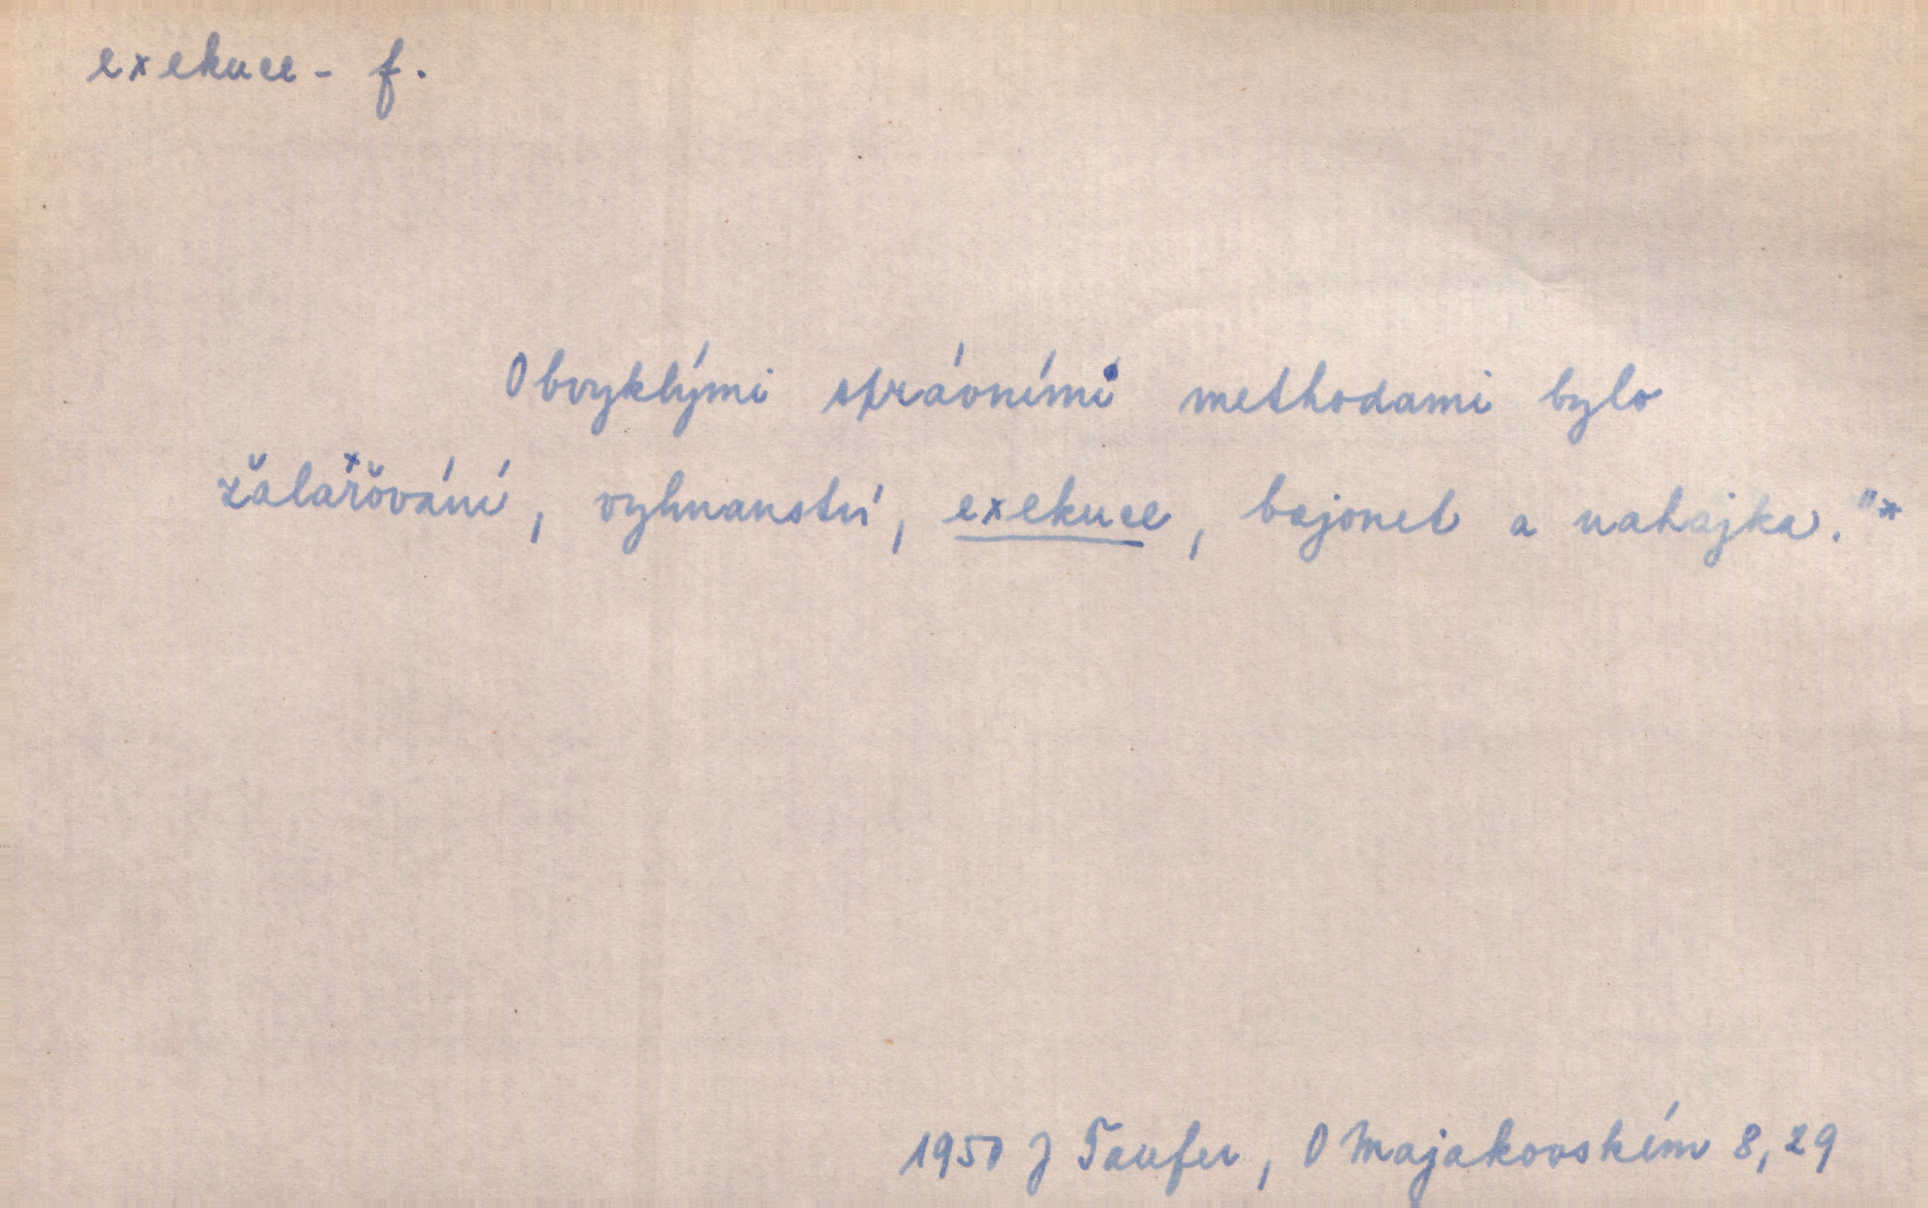 exekuce - f.
Obvyklými správními methodami bylo
žalařování, vyhnanství, exekuce, bajonet a nahajka."*
1950 J Taufer, O Majakovském 8,29